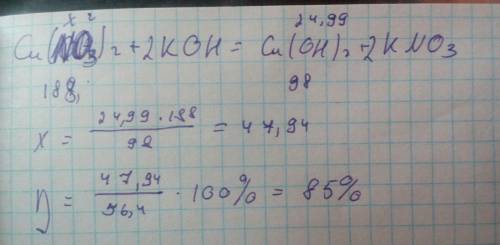 x г 24,99
Cu(NO3)2 + 2KOH = Cu(OH)2 + 2KNO3
188, 98
x = 24,99 · 188 / 98 = 47,94
η = 47,94 / 56,4 · 100% = 85%